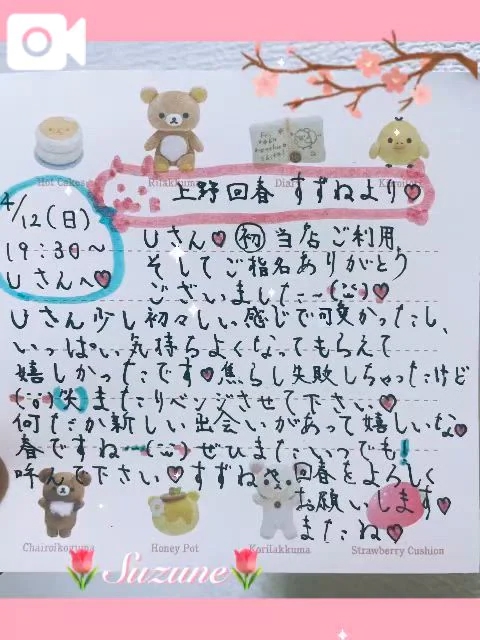 Hot Cakes
Rilakkuma
上野回春 すずねより♥
4/12(日)
19:30〜
Uさんへ♥
Uさん♥ 初 当店ご利用
そしてご指名ありがとう
ございました〜♥
Uさん少し初々しい感じで可愛かったし、
いっぱい気持ちよくなってもらえて
嬉しかったです♥焦らし失敗しちゃったけど
(笑)またリベンジさせて下さい♥
何だか新しい出会いがあって嬉しいな♥
春ですね〜ぜひまたいつでも!
呼んで下さい♥すずねや回春をよろしく
お願いします♥
またね♥
Chairoikoguma
Honey Pot
Korilakkuma
Strawberry Cushion
Suzune